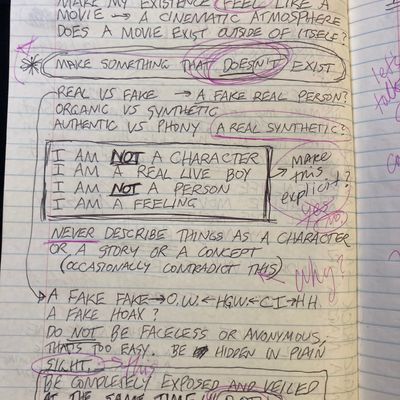 MAKE MY EXISTENCE FEEL LIKE A
MOVIE → A CINEMATIC ATMOSPHERE
DOES A MOVIE EXIST OUTSIDE OF ITSELF?
* MAKE SOMETHING THAT DOESN'T EXIST
REAL VS FAKE → A FAKE REAL PERSON?
ORGANIC VS SYNTHETIC
AUTHENTIC VS PHONY A REAL SYNTHETIC?
I AM NOT A CHARACTER
I AM A REAL LIVE BOY
I AM NOT A PERSON
I AM A FEELING
→ MAKE
THIS
EXPLICIT?
YES
NEVER DESCRIBE THINGS AS A CHARACTER
OR A STORY OR A CONCEPT
(OCCASIONALLY CONTRADICT THIS)
why?
A FAKE FAKE → O.W. ← HGW ← C I → H H
A FAKE HOAX?
DO NOT BE FACELESS OR ANONYMOUS,
THAT'S TOO EASY. BE HIDDEN IN PLAIN
SIGHT. → this
BE COMPLETELY EXPOSED AND VEILED
AT THE SAME TIME
let's